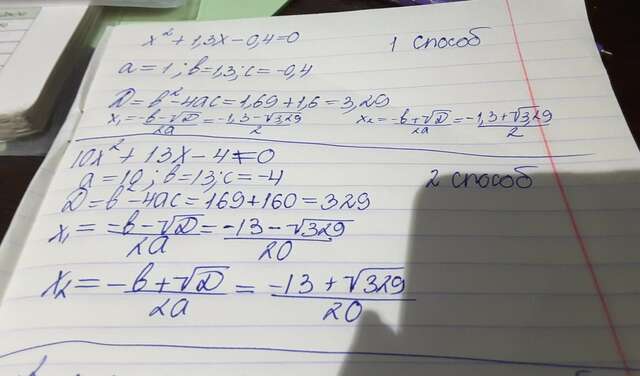 x² + 1,3x - 0,4 = 0
1 способ
a = 1; b = 1,3; c = -0,4
D = b² - 4ac = 1,69 + 1,6 = 3,29
x₁ = (-b - √D)/2a = (-1,3 - √3,29)/2    x₂ = (-b + √D)/2a = (-1,3 + √3,29)/2
10x² + 13x - 4 = 0
a = 10; b = 13; c = -4
2 способ
D = b² - 4ac = 169 + 160 = 329
x₁ = (-b - √D)/2a = (-13 - √329)/20
x₂ = (-b + √D)/2a = (-13 + √329)/20